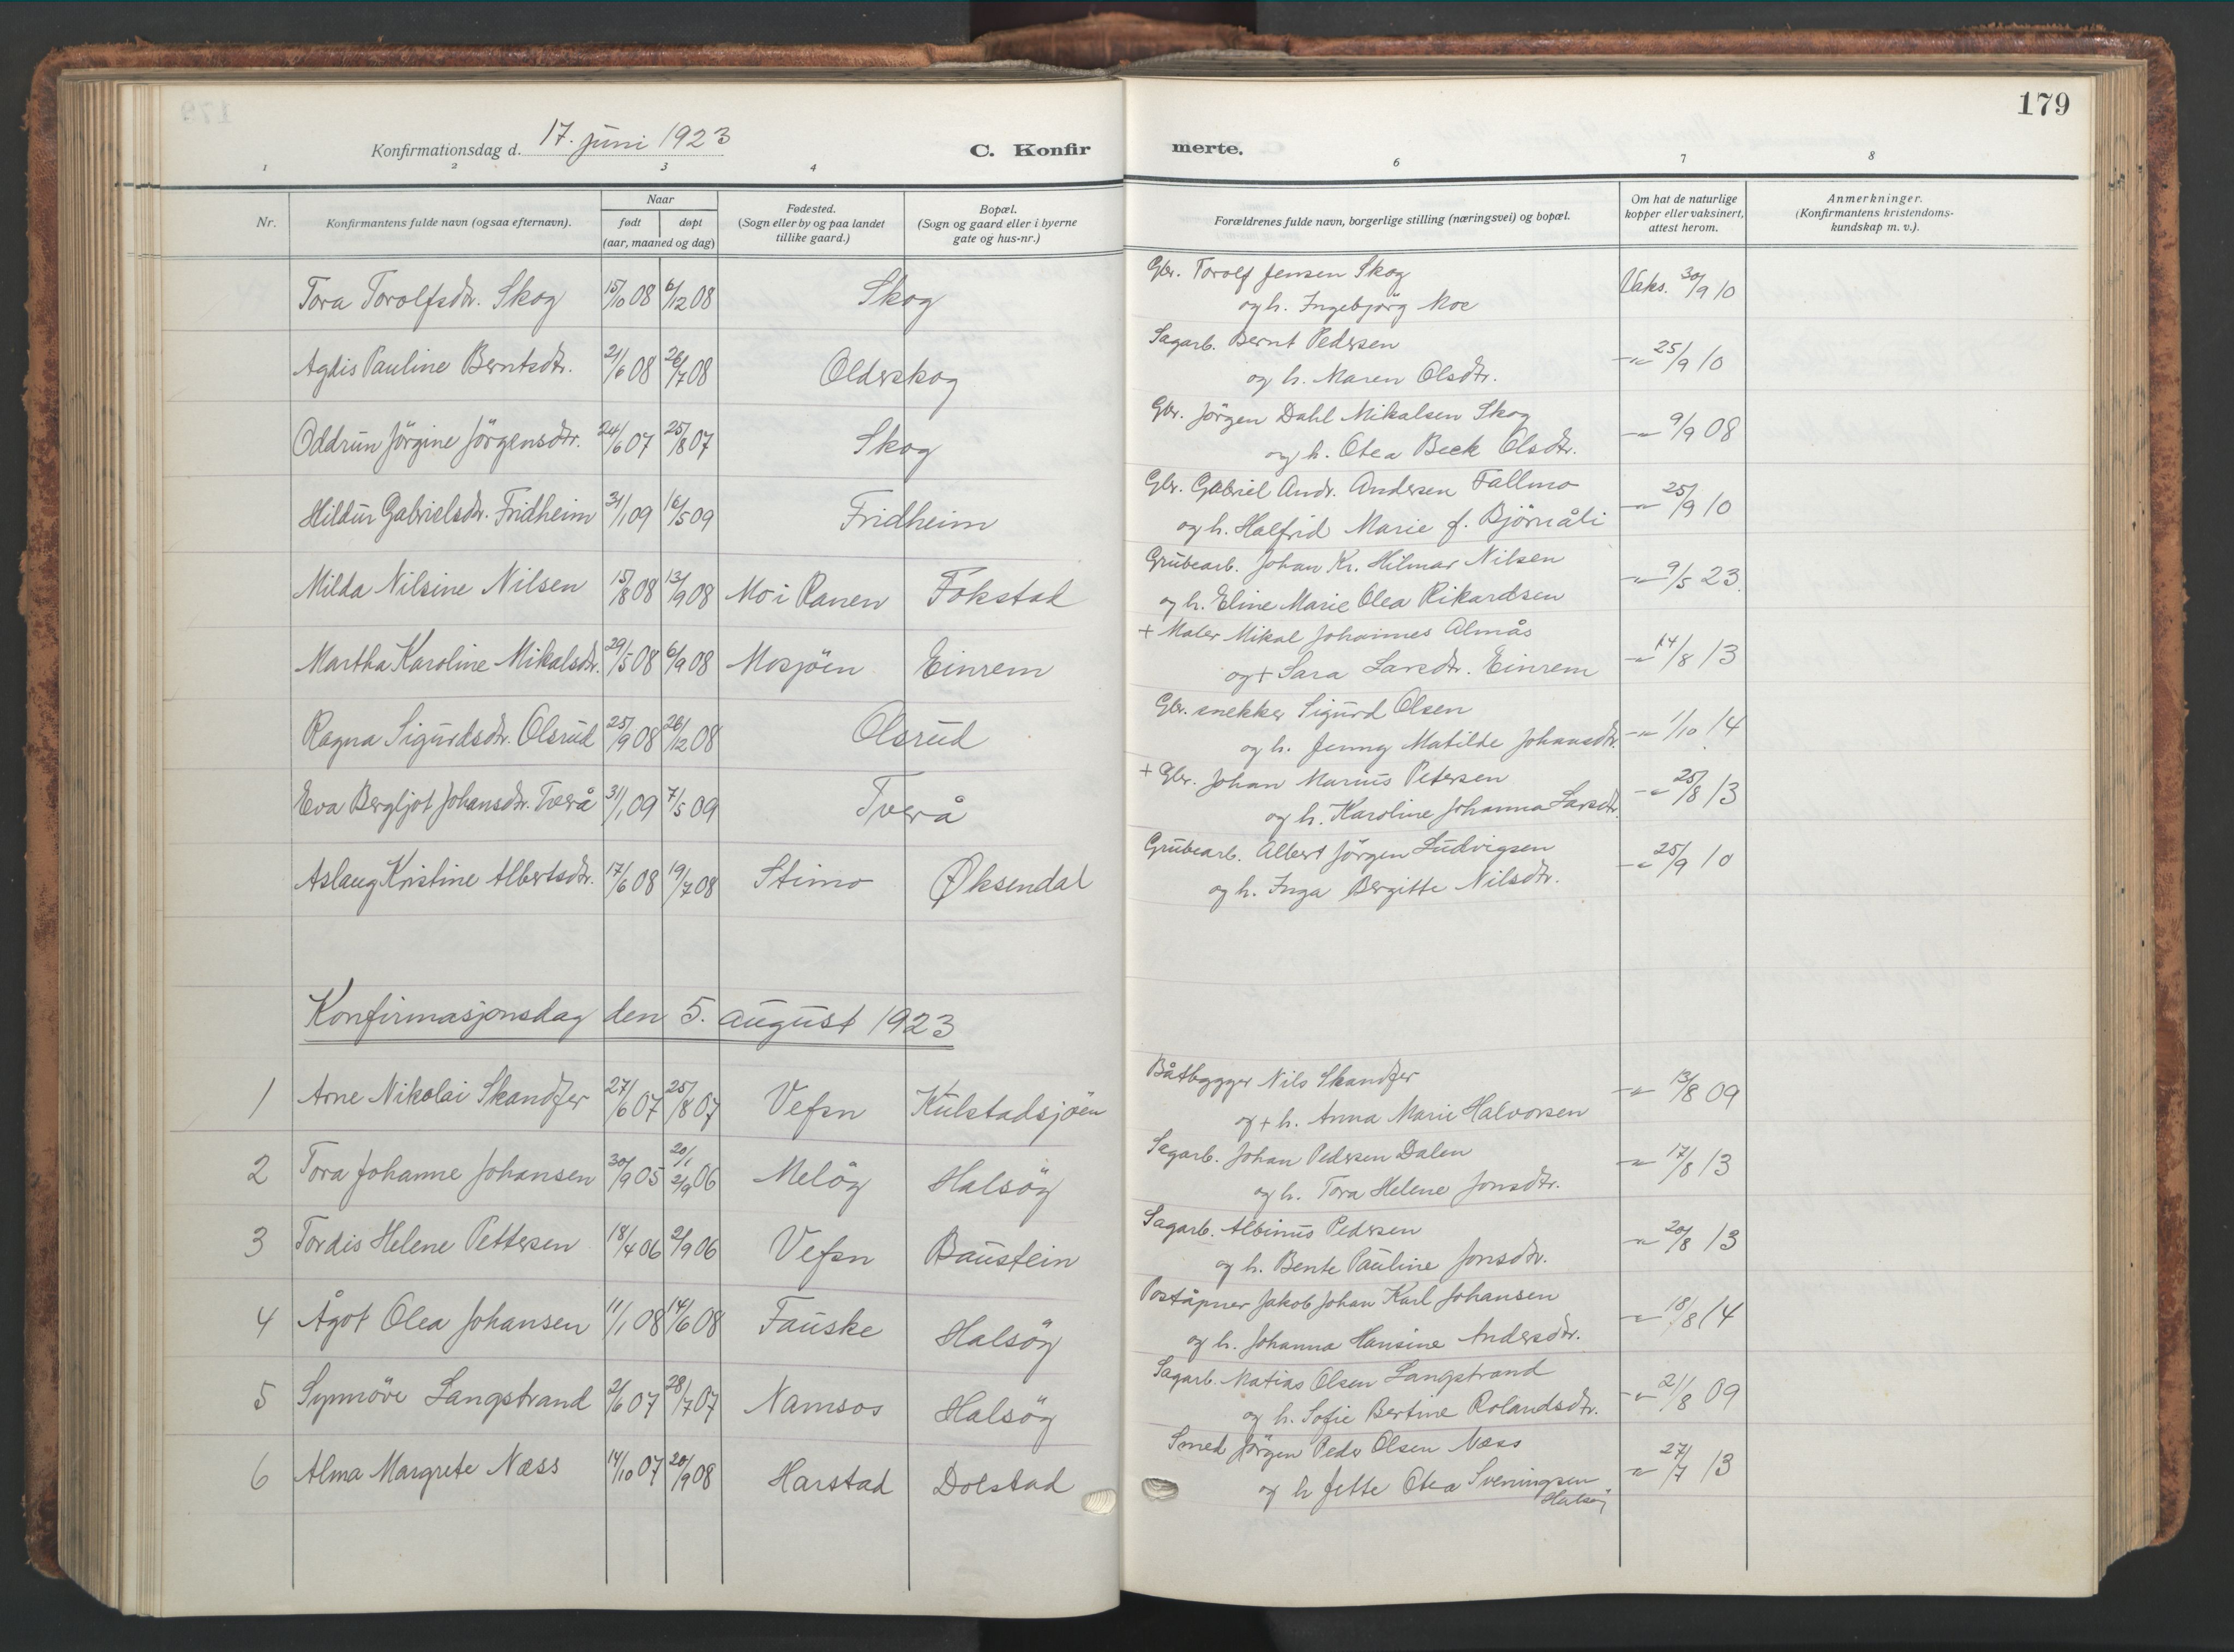 179
Konfirmationsdag d. 17. juni 1923
C. Konfir merte.
1 2 3 4 6 7 8
Nr.
Konfirmantens fulde navn (ogsaa efternavn).
Naar
født døpt
(aar, maaned og dag)
Fødested.
(Sogn eller by og paa landet
tillike gaard.)
Bopæl.
(Sogn og gaard eller i byerne
gate og hus-nr.)
Forældrenes fulde navn, borgerlige stilling (næringsvei) og bopæl.
Om hat de naturlige
kopper eller vaksinert,
attest herom.
Anmerkninger.
(Konfirmantens kristendoms-
kundskap m. v.).
Tora Torolfsdtr. Skog 15/10 08 6/12 08 Skog Gbr. Torolf Jensen Skog Vaks. 30/9 10
og h. Ingebjørg Moe
Agdis Pauline Berntsdtr. 21/6 08 26/7 08 Olderskog Sagarb. Bernt Pedersen -"- 25/9 10
og h. Maren Olsdtr.
Oddrun Jörgine Jörgensdtr. 24/6 07 25/8 07 Skog Gbr. Jörgen Dahl Mikalsen Skog -"- 9/9 08
og h. Otea Beck Olsdtr.
Hildur Gabrielsdtr. Fridheim 31/1 09 16/5 09 Fridheim Gbr. Gabriel Andr. Andersen Fallmo -"- 25/9 10
og h. Halfrid Marie f. Björnåli
Milda Nilsine Nilsen 15/8 08 13/9 08 Mo i Ranen Fokstad Grubearb. Johan Kr. Hilmar Nilsen -"- 9/5 23.
og h. Eline Marie Olea Rikardsen
Martha Karoline Mikalsdtr. 29/5 08 6/9 08 Mosjöen Einrem + Maler Mikal Johannes Almås -"- 14/8 13
og + Sara Larsdtr. Einrem
Ragna Sigurdsdtr. Olsrud 25/9 08 26/12 08 Olsrud Gbr. snekker Sigurd Olsen -"- 1/10 14
og h. Jenny Matilde Johansdtr.
Eva Bergljot Johansdtr. Tverå 31/1 09 7/5 09 Tverå + Gbr. Johan Marius Petersen -"- 25/8 13
og h. Karoline Johanna Larsdtr.
Aslaug Kristine Albertsdtr. 17/6 08 19/7 08 Stimo Øksendal Grubearb. Albert Jörgen Ludvigsen -"- 25/9 10
og h. Inga Bergitte Nilsdtr.
Konfirmasjonsdag den 5. august 1923
1 Arne Nikolai Skandfer 27/6 07 25/8 07 Vefsn Kulstadsjöen Båtbygger Nils Skandfer -"- 13/8 09
og + h. Anna Marie Halvorsen
2 Tora Johanne Johansen 30/9 05 20/1 2/9 06 Melöy Halsöy Sagarb. Johan Pedersen Dalen -"- 17/8 13
og h. Tora Helene Jonsdtr.
3 Tordis Helene Pettersen 18/4 06 2/9 06 Vefsn Baustein Sagarb. Albinus Pedersen -"- 20/8 13
og h. Bente Pauline Jonsdtr.
4 Ågot Olea Johansen 11/1 08 14/6 08 Fauske Halsöy Poståpner Jakob Johan Karl Johansen -"- 18/8 14
og h. Johanna Hansine Andersdtr.
5 Synnöve Langstrand 2/6 07 28/7 07 Namsos Halsöy Sagarb. Matias Olsen Langstrand -"- 21/8 09
og h. Sofie Bertine Rolandsdtr.
6 Alma Margrete Næss 14/10 07 20/9 08 Harstad Dolstad Smed Jörgen Peder Olsen Næss -"- 27/7 13
og h Jette Otea Sveningsen
Halsöy